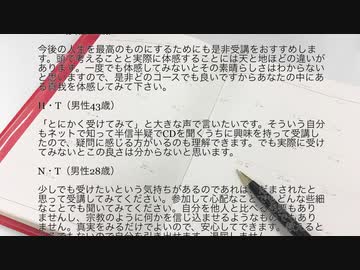 今後の人生を最高のものにするためにも是非受講をおすすめしま
す。頭で考えることと実際に体感することには天と地ほどの違いが
あります。一度でも体感してみないとその素晴らしさはわからない
と思いますので、是非どのコースでも良いですからあなたの中にあ
る真我を体感してみて下さい。
H・T（男性43歳）
「とにかく受けてみて」と大きな声で言いたいです。そういう自分
もネットで知って半信半疑でCDを聞くうちに興味を持って受講し
たので、疑問に感じる方がいるのも理解できます。でも実際に受け
てみないとこの良さは分からないと思います。
N・T（男性28歳）
少しでも受けたいという気持ちがあるのであれば、だまされたと
思って受講してみてください。参加して心配なこと、どんな些細
なことでも聞いてみてください。自分を他人と比べる必要もあり
ませんし、宗教のように何かを信じ込ませるようなものでもあり
ません。真実をみるだけでよいので、安心してできます。